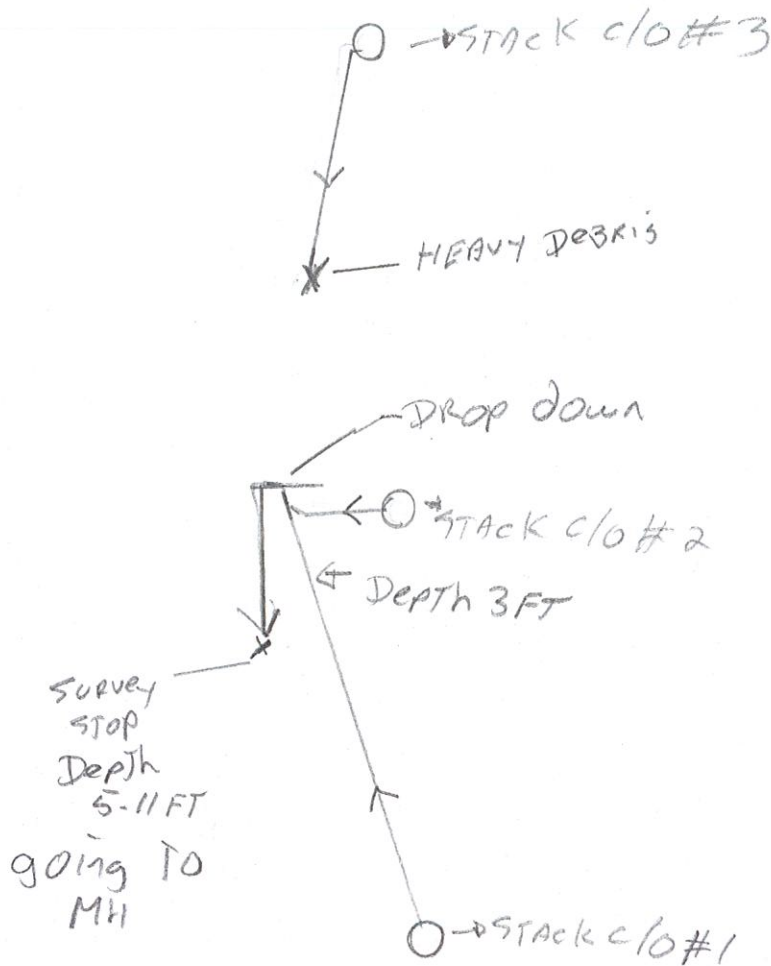 STACK C/O # 3
HEAVY DEBRIS
DROP down
STACK C/O # 2
Depth 3FT
SURVEY
STOP
Depth
5-11FT
going TO
MH
STACK C/O #1